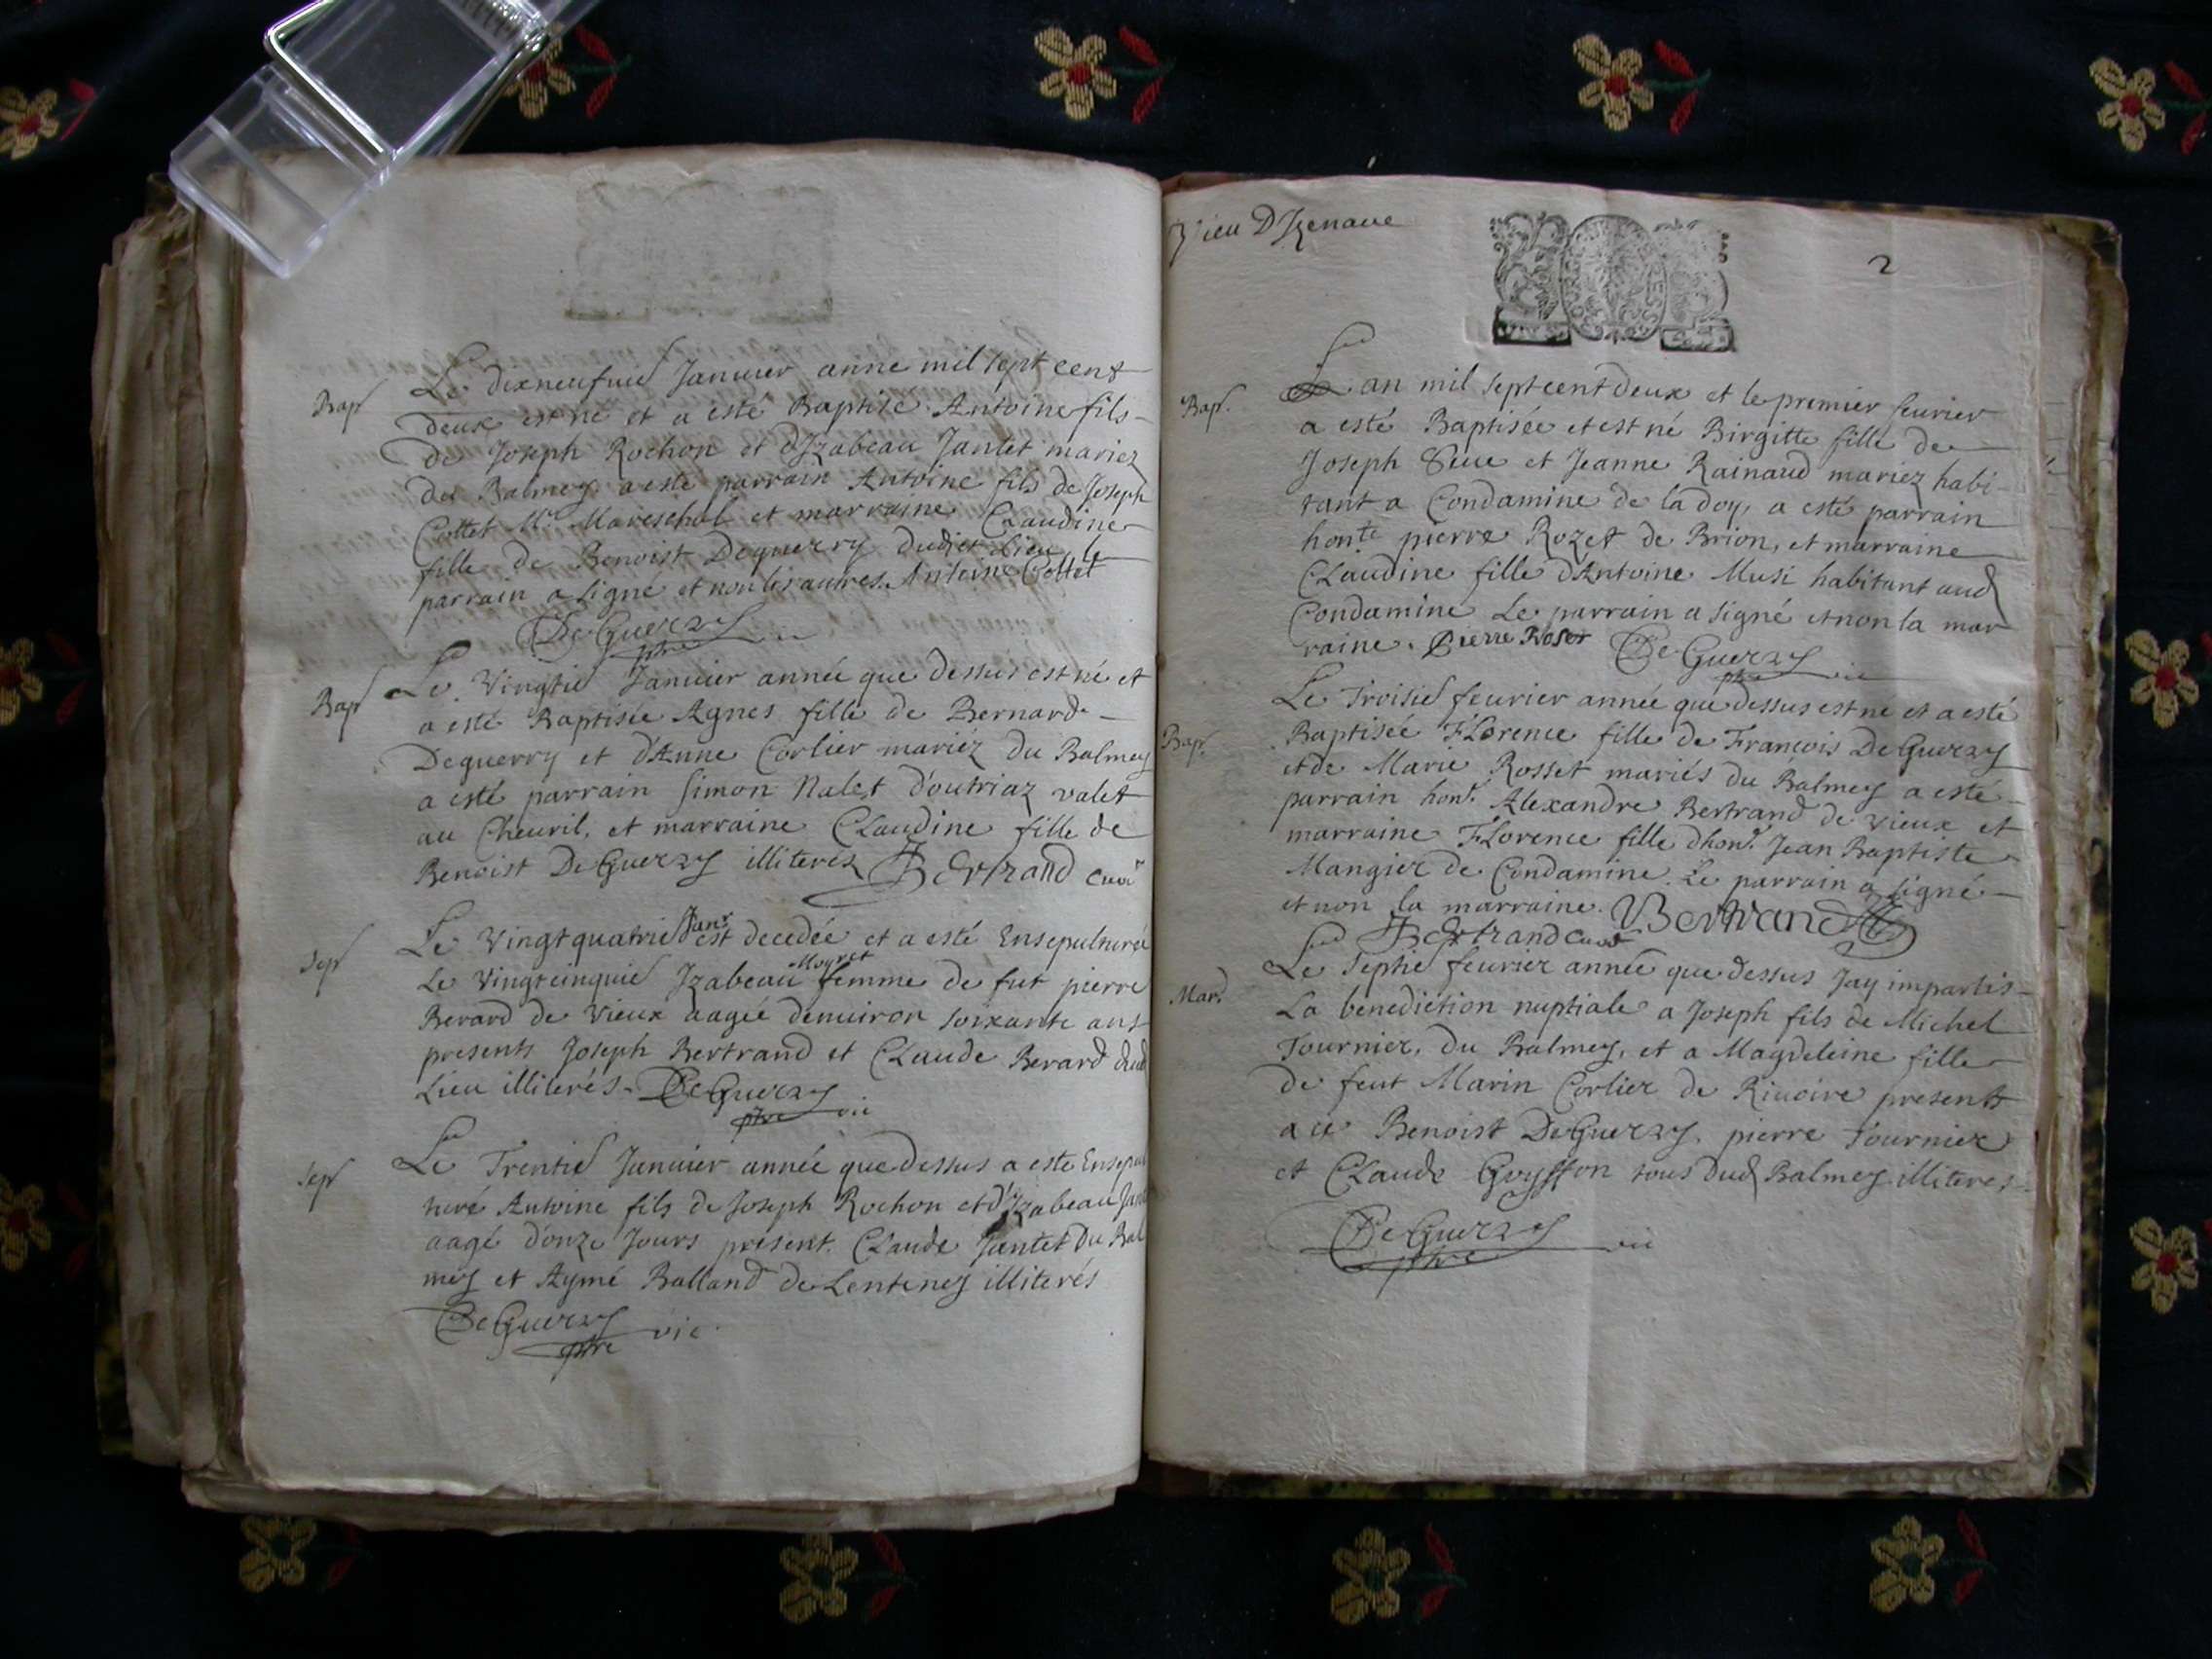 Bap
Le dixneufvie Januier anne mil sept cent
deux est né et a esté Baptisé Antoine fils
de Joseph Rochon et d'Izabeau Jantet mariez
du Balmey a esté parrain Antoine fils de Joseph
Cottet Me Mareschal et marraine Claudine
fille de Benoist Deguerry dudict lieu le
parrain a signé et non les autres. Antoine Cottet
DeGuerry
ptre vic
Bap
Le Vingtie Januier année que dessus est né et
a esté Baptisée Agnes fille de Bernard
Deguerry et d'Anne Corlier mariéz du Balmey
a esté parrain Simon Nalet d'outriaz valet
au Cheuril, et marraine Claudine fille de
Benoist DeGuerry illiterés JBertrand curé
Sep
Le Vingtquatrie Janr est decedée et a esté Ensepulturée
Le Vingtcinquie Izabeau Moyret femme de fut pierre
Berard de Vieux aagée denuiron soixante ans
presents Joseph Bertrand et Claude Berard dud
Lieu illiterés DeGuerry
ptre vic
Sep
Le Trentie Januier année que dessus a este Ensepul
turé Antoine fils de Joseph Rochon et d'Izabeau Jan
aagé d'onze Jours present Claude Jantet du Bal
mey et Aymé Balland de Lenteney illiterés
DeGuerry
ptre vic
Vieu D'Izenaue
2
Bap.
Lan mil septcent deux et le premier feurier
a esté Baptisée et est né Birgitte fille de
Joseph Seue et Jeanne Rainaud mariez habi
tant a Condamine de la doy, a esté parrain
honte pierre Rozet de Brion, et marraine
Claudine fille d'Antoine Musi habitant aud
Condamine Le parrain a signé et non la mar
raine. Pierre Roset DeGuerry
ptre vic
Bap.
Le Troisie feurier année que dessus est né et a esté
Baptisée Florence fille de Francois DeGuerry
et de Marie Rosset mariés du Balmey a esté
parrain hont. Alexandre Bertrand de Vieux et
marraine Florence fille dhont. Jean Baptiste
Mangier de Condamine. Le parrain a signé
et non la marraine. Bertrand
JBertrand curé
Mar.
Le Septie feurier année que dessus Jay impartis
La benediction nuptiale a Joseph fils de Michel
Tournier, du Balmey, et a Magdeleine fille
de feut Marin Corlier de Riuoire presents
a ce Benoist DeGuerry, pierre Tournier
et Claude Goyffon tous dud Balmey illiteres
DeGuerry
ptre vic